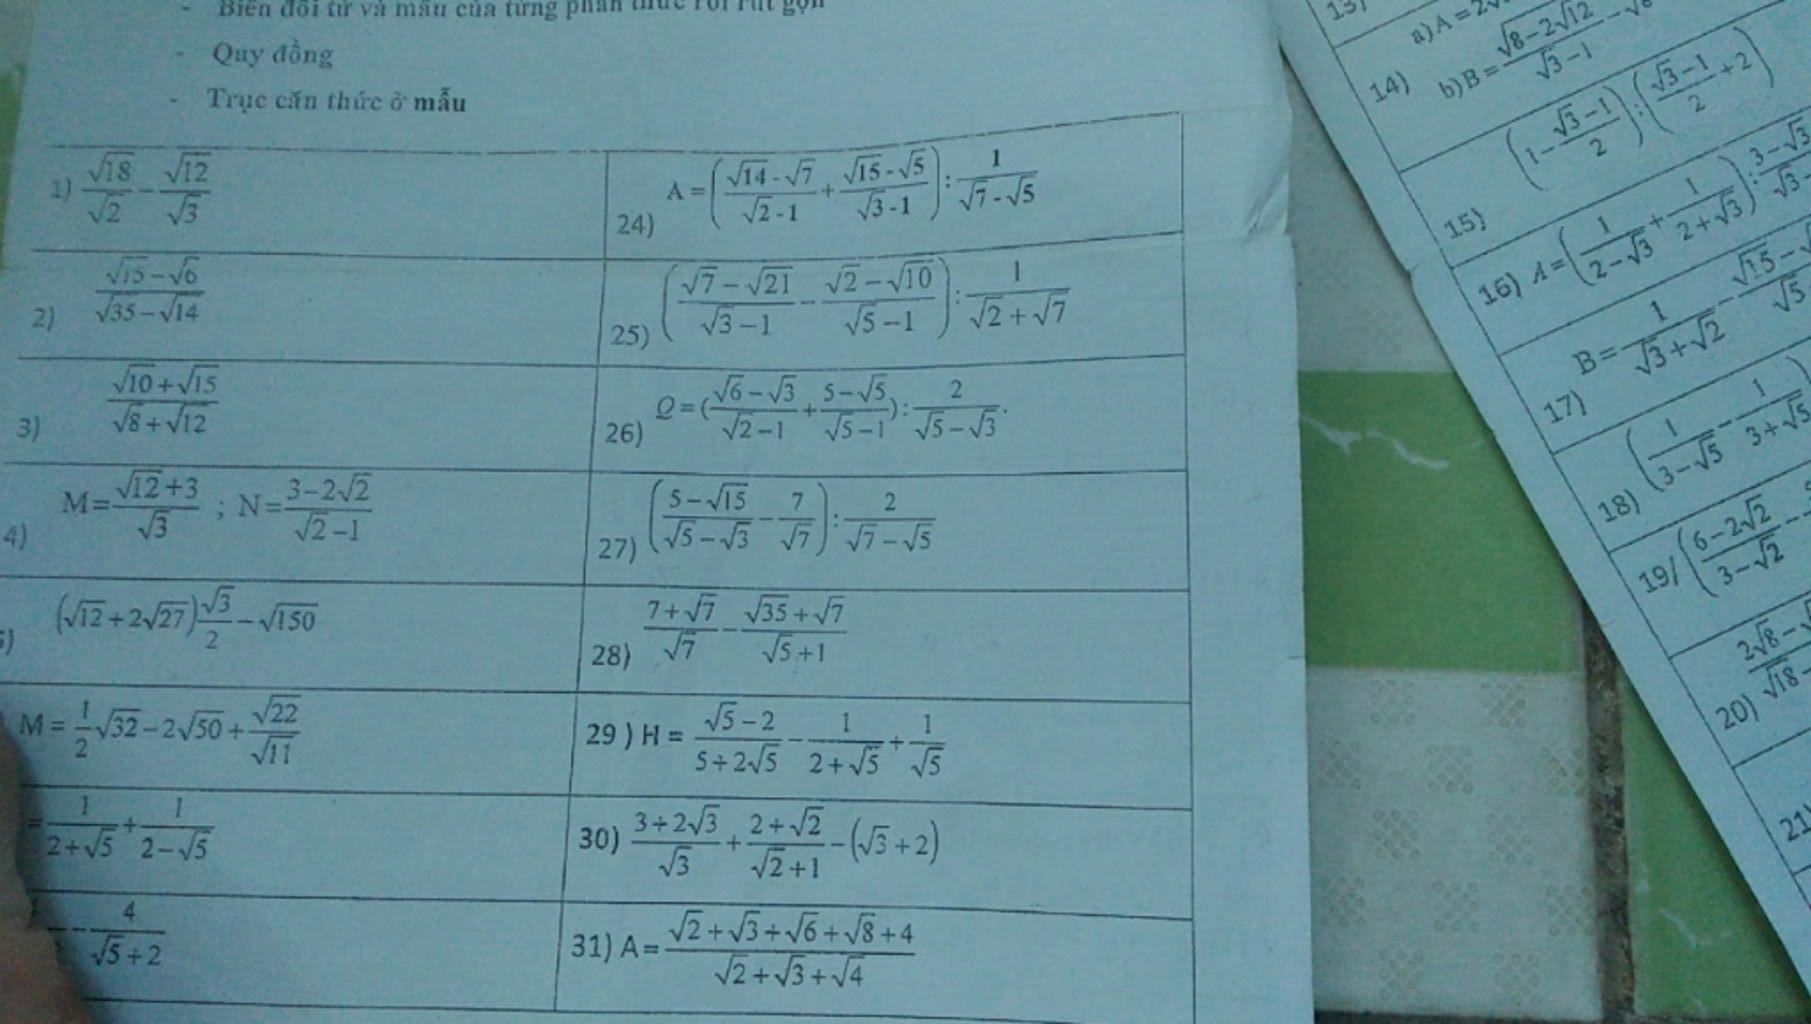 - Biến đổi tử và mẫu của từng phân thức rồi rút gọn
- Quy đồng
- Trục căn thức ở mẫu
1) \frac{\sqrt{18}}{\sqrt{2}} - \frac{\sqrt{12}}{\sqrt{3}}
2) \frac{\sqrt{15}-\sqrt{6}}{\sqrt{35}-\sqrt{14}}
3) \frac{\sqrt{10}+\sqrt{15}}{\sqrt{8}+\sqrt{12}}
4) M=\frac{\sqrt{12}+3}{\sqrt{3}} ; N=\frac{3-2\sqrt{2}}{\sqrt{2}-1}
(\sqrt{12}+2\sqrt{27})\frac{\sqrt{3}}{2}-\sqrt{150}
M=\frac{1}{2}\sqrt{32}-2\sqrt{50}+\frac{\sqrt{22}}{\sqrt{11}}
=\frac{1}{2+\sqrt{5}}+\frac{1}{2-\sqrt{5}}
-\frac{4}{\sqrt{5}+2}
24) A=\left(\frac{\sqrt{14}-\sqrt{7}}{\sqrt{2}-1}+\frac{\sqrt{15}-\sqrt{5}}{\sqrt{3}-1}\right):\frac{1}{\sqrt{7}-\sqrt{5}}
25) \left(\frac{\sqrt{7}-\sqrt{21}}{\sqrt{3}-1}-\frac{\sqrt{2}-\sqrt{10}}{\sqrt{5}-1}\right):\frac{1}{\sqrt{2}+\sqrt{7}}
26) Q=(\frac{\sqrt{6}-\sqrt{3}}{\sqrt{2}-1}+\frac{5-\sqrt{5}}{\sqrt{5}-1}):\frac{2}{\sqrt{5}-\sqrt{3}}.
27) \left(\frac{5-\sqrt{15}}{\sqrt{5}-\sqrt{3}}-\frac{7}{\sqrt{7}}\right):\frac{2}{\sqrt{7}-\sqrt{5}}
28) \frac{7+\sqrt{7}}{\sqrt{7}}-\frac{\sqrt{35}+\sqrt{7}}{\sqrt{5}+1}
29 ) H = \frac{\sqrt{5}-2}{5+2\sqrt{5}}-\frac{1}{2+\sqrt{5}}+\frac{1}{\sqrt{5}}
30) \frac{3+2\sqrt{3}}{\sqrt{3}}+\frac{2+\sqrt{2}}{\sqrt{2}+1}-(\sqrt{3}+2)
31) A=\frac{\sqrt{2}+\sqrt{3}+\sqrt{6}+\sqrt{8}+4}{\sqrt{2}+\sqrt{3}+\sqrt{4}}
13)
a) A = 2
14) b) B=\frac{\sqrt{8-2\sqrt{12}}}{\sqrt{3}-1}-
15) \left(1-\frac{\sqrt{3}-1}{2}\right):\left(\frac{\sqrt{3}-1}{2}+2\right)
16) A=\left(\frac{1}{2-\sqrt{3}}+\frac{1}{2+\sqrt{3}}\right):\frac{3-\sqrt{3}}{\sqrt{3}-
17) B=\frac{1}{\sqrt{3}+\sqrt{2}}-\frac{\sqrt{15}-}{\sqrt{5}}
18) \left(\frac{1}{3-\sqrt{5}}-\frac{1}{3+\sqrt{5}}\right)
19/ \left(\frac{6-2\sqrt{2}}{3-\sqrt{2}}-
20) \frac{2\sqrt{8}-}{\sqrt{18}-}
21)